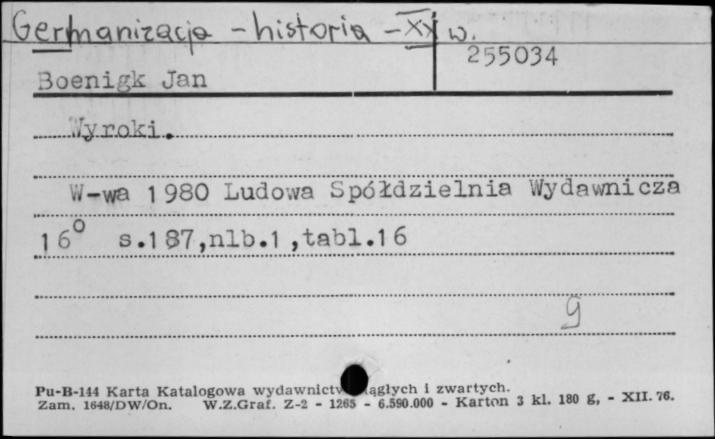 Germanizacja - historia - XX w.
255034
Boenigk Jan
Wyroki.
W-wa 1980 Ludowa Spółdzielnia Wydawnicza
16° s.187,nlb.1,tabl.16
g
Pu-B-144 Karta Katalogowa wydawnictw ciągłych i zwartych.
Zam. 1648/DW/On. W.Z.Graf. Z-2 - 1265 - 6.590.000 - Karton 3 kl. 180 g, - XII. 76.